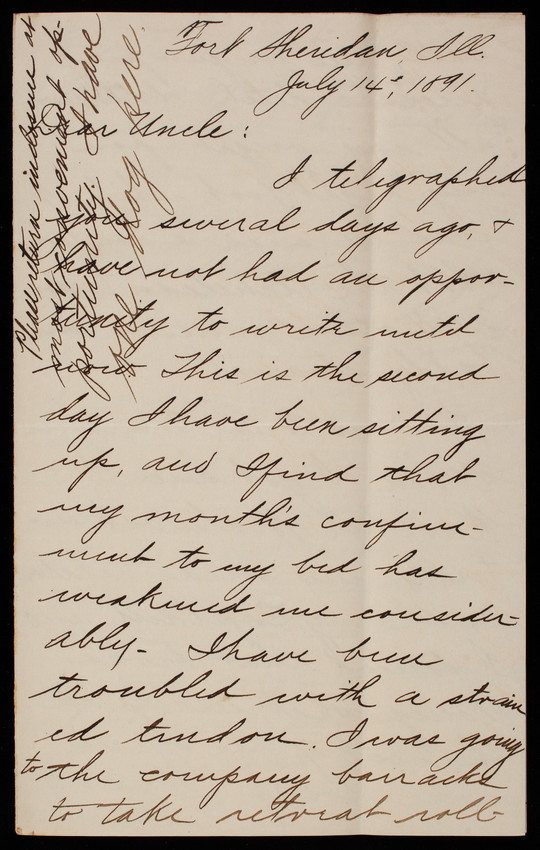 Fort Sheridan, Ill.
July 14th, 1891.
Dear Uncle:
I telegraphed
you several days ago, &
have not had an oppor-
tunity to write until
now This is the second
day I have been sitting
up, and I find that
my month's confine-
ment to my bed has
weakened me consider-
ably - I have been
troubled with a strain
ed tendon. I was going
to the company barracks
to take retreat roll-
Please return inclosure at
most convenient op-
portunity. I have
copy here.